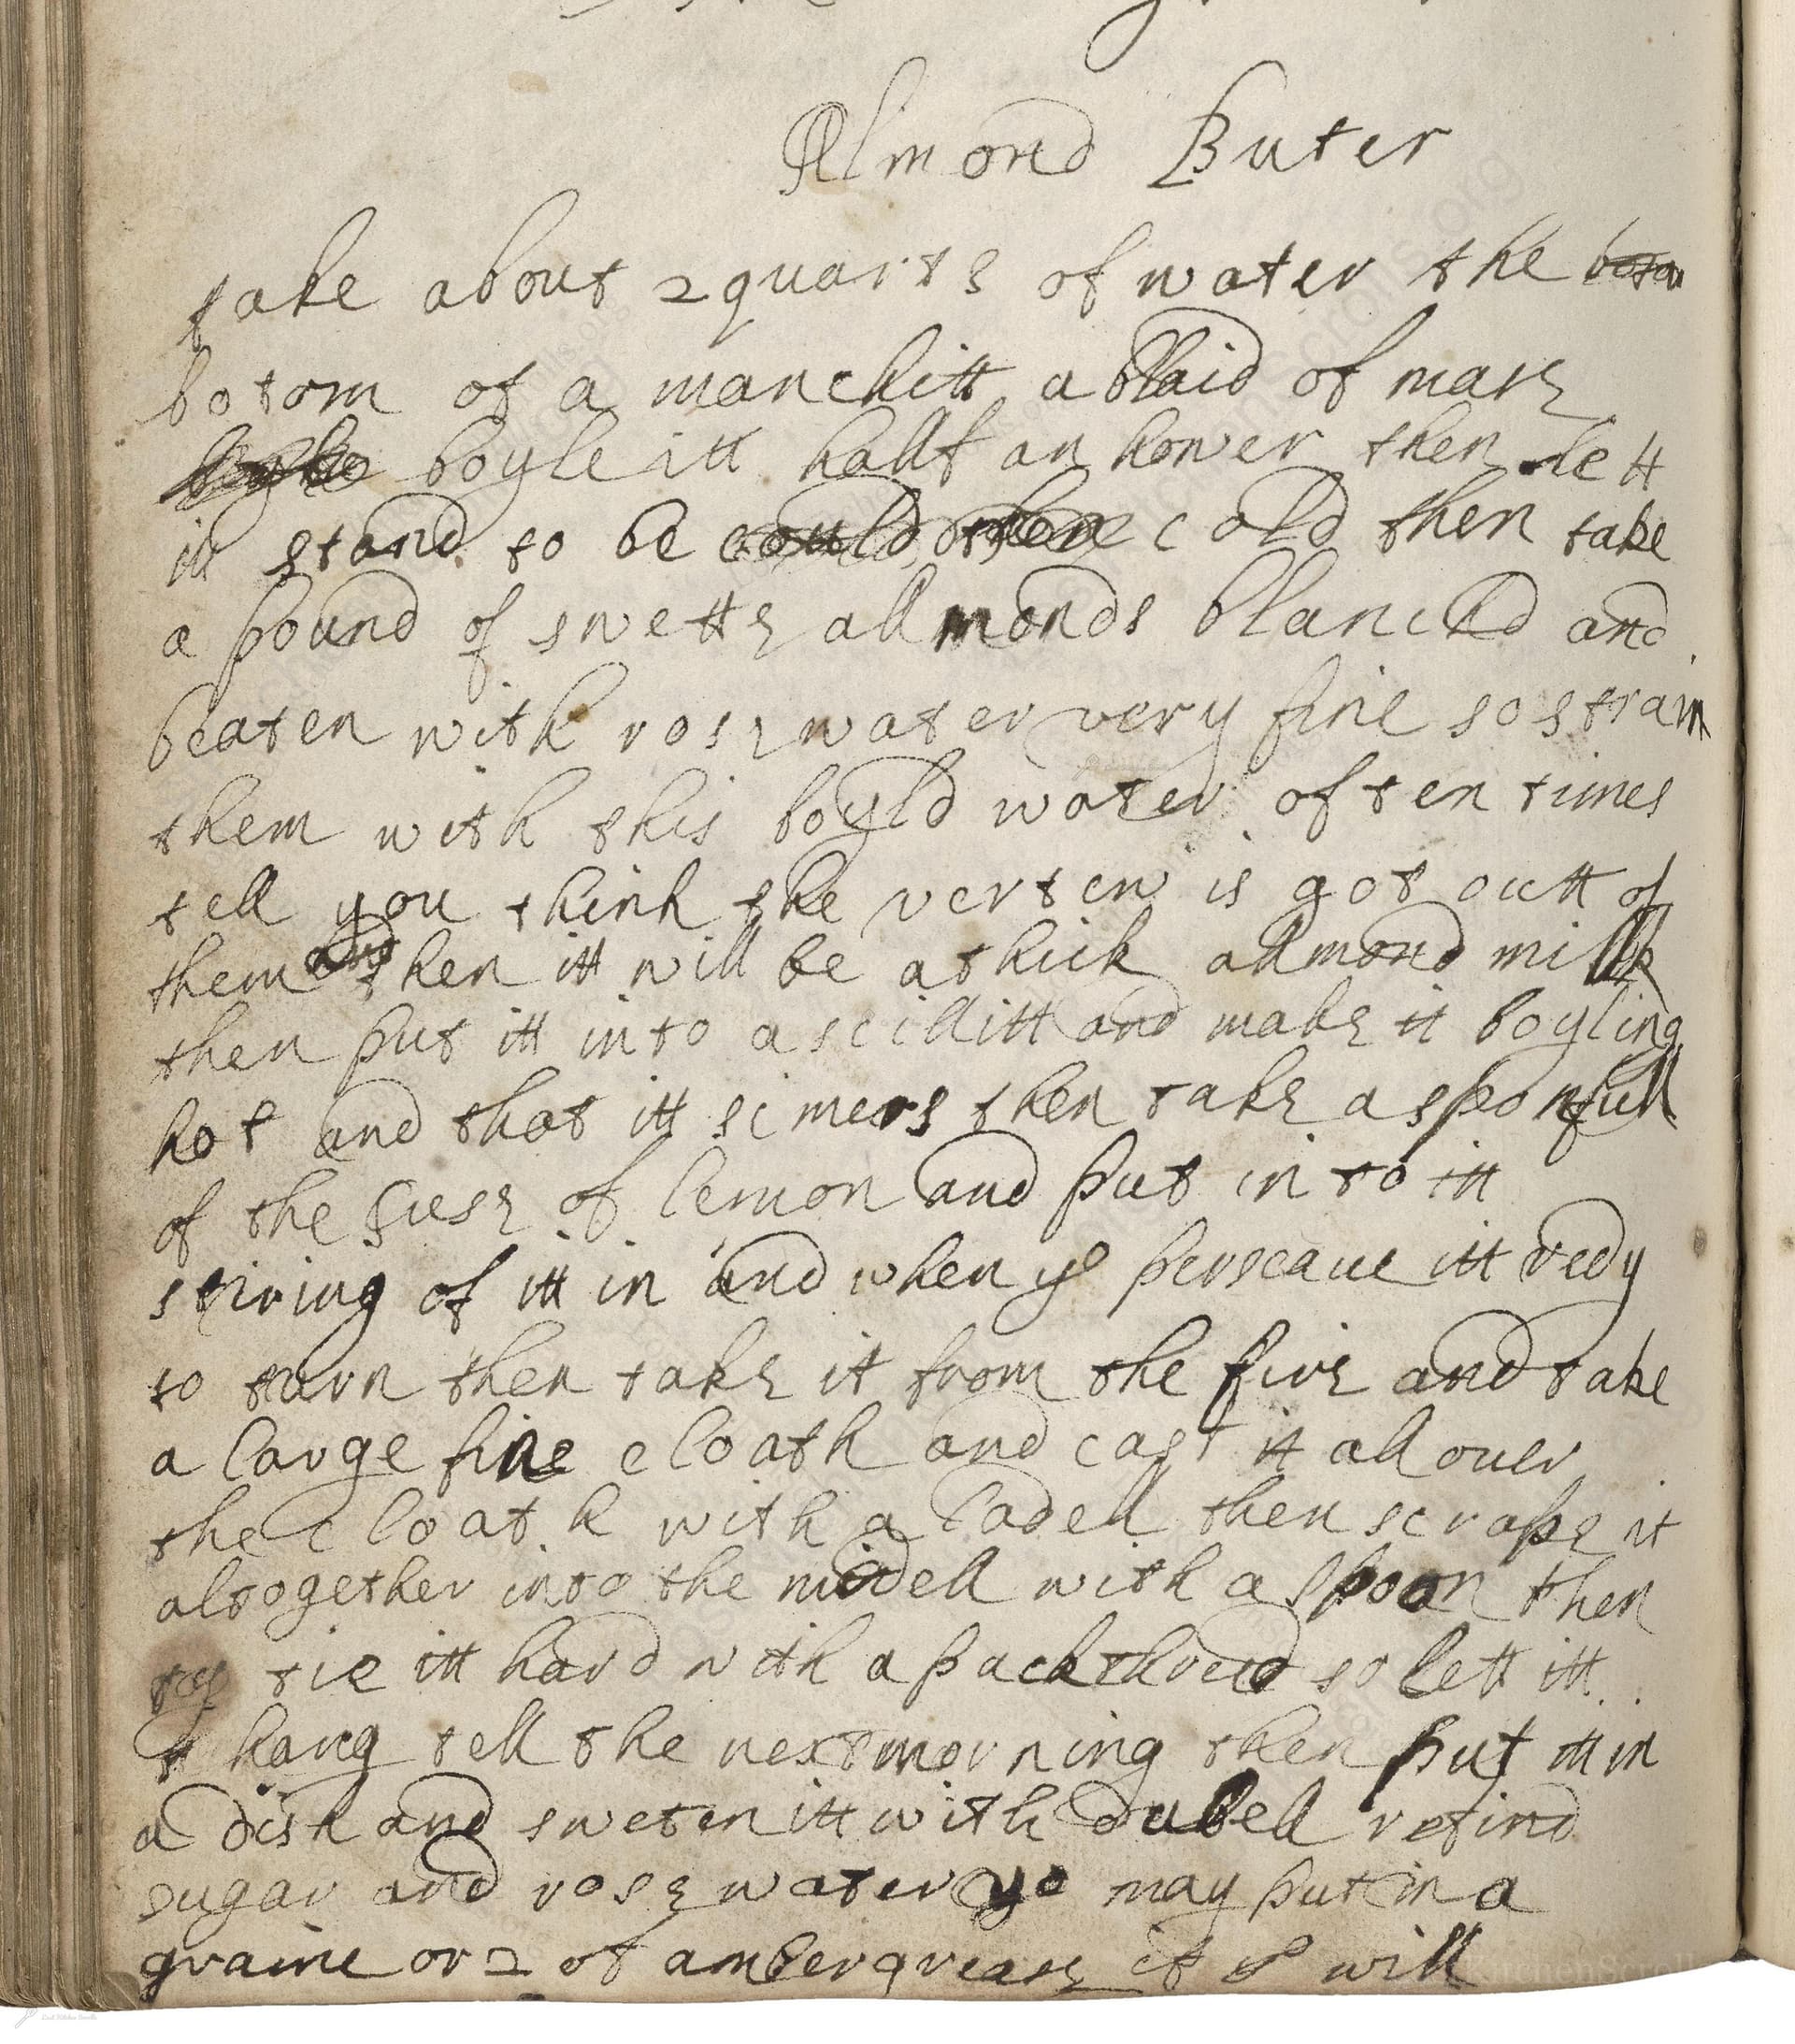 Almond Buter
take about 2 quarts of water the botom
botom of a manchitt a blaid of mase
boyle itt hallf an hower then lett
itt stand to be could then cold then take
a pound of swette allmonds blanchd and
beaten with rose water very fine so strain
them with this boyld water often times
tell you think the verten is got outt of
them and then itt will be a thick allmond millk
then put itt into a scillitt and make it boyling
hot and that itt simers then take a sponfull
of the juese of lemon and put in to itt
stiring of itt in and when yo perseaue itt redy
to turn then take it from the fire and take
a large fine cloath and cast it all ouer
the cloath with a ladell then scrape it
altogether into the midell with a spoon then
tie itt hard with a packthread so lett itt
hang tell the next morning then put itt in
a dish and sweten itt with dubell refind
sugar and rose water yo may put in a
graine or 2 of ambergrease if yo will